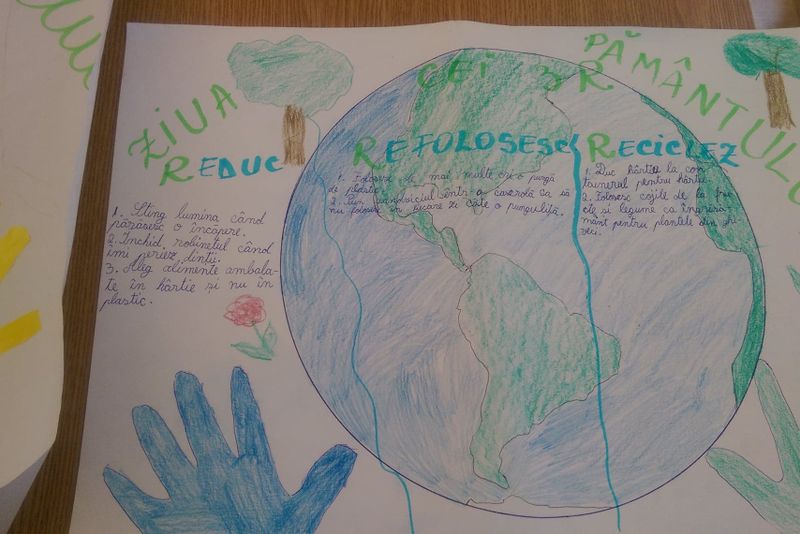 ZIUA PĂMÂNTULU
CEI 3 R
REDUC
1. Sting lumina când
părăsesc o încăpere.
2. Închid robinetul când
îmi periez dinții.
3. Aleg alimente ambala-
te în hârtie și nu în
plastic.
REFOLOSESC
1. Folosesc de mai multe ori o pungă
de plastic.
2. Pun sandviciul într-o caserolă ca să
nu folosesc în fiecare zi câte o punguliță.
RECICLEZ
1. Duc hârtia la con
tainerul pentru hârtie.
2. Folosesc cojile de la fruc
te și legume ca îngrășă
mânt pentru plantele din ghi
veci.